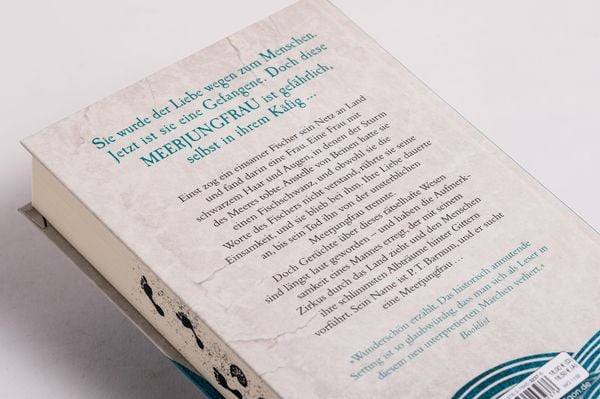 Sie wurde der Liebe wegen zum Menschen.
Jetzt ist sie eine Gefangene. Doch diese
MEERJUNGFRAU ist gefährlich,
selbst in ihrem Käfig ...
Einst zog ein einsamer Fischer sein Netz an Land
und fand darin eine Frau. Eine Frau mit
schwarzem Haar und Augen, in denen der Sturm
des Meeres tobte Anstelle von Beinen hatte sie
einen Fischschwanz, und obwohl sie die
Worte des Fischers nicht verstand, rührte sie seine
Einsamkeit, und sie blieb bei ihm. Ihre Liebe dauerte
an, bis sein Tod ihn von der unsterblichen
Meerjungfrau trennte.
Doch Gerüchte über dieses rätselhafte Wesen
sind längst laut geworden – und haben die Aufmerk-
samkeit eines Mannes erregt, der mit seinem
Zirkus durch das Land zieht und den Menschen
ihre schlimmsten Albträume hinter Gittern
vorführt. Sein Name ist P.T. Barnum, und er sucht
eine Meerjungfrau ...
»Wunderschön erzählt. Das historisch anmutende
Setting ist so glaubwürdig, dass man sich als Leser in
diesem neu interpretierten Märchen verliert.«
Booklist
18,00 € (D)
18,50 € (A)